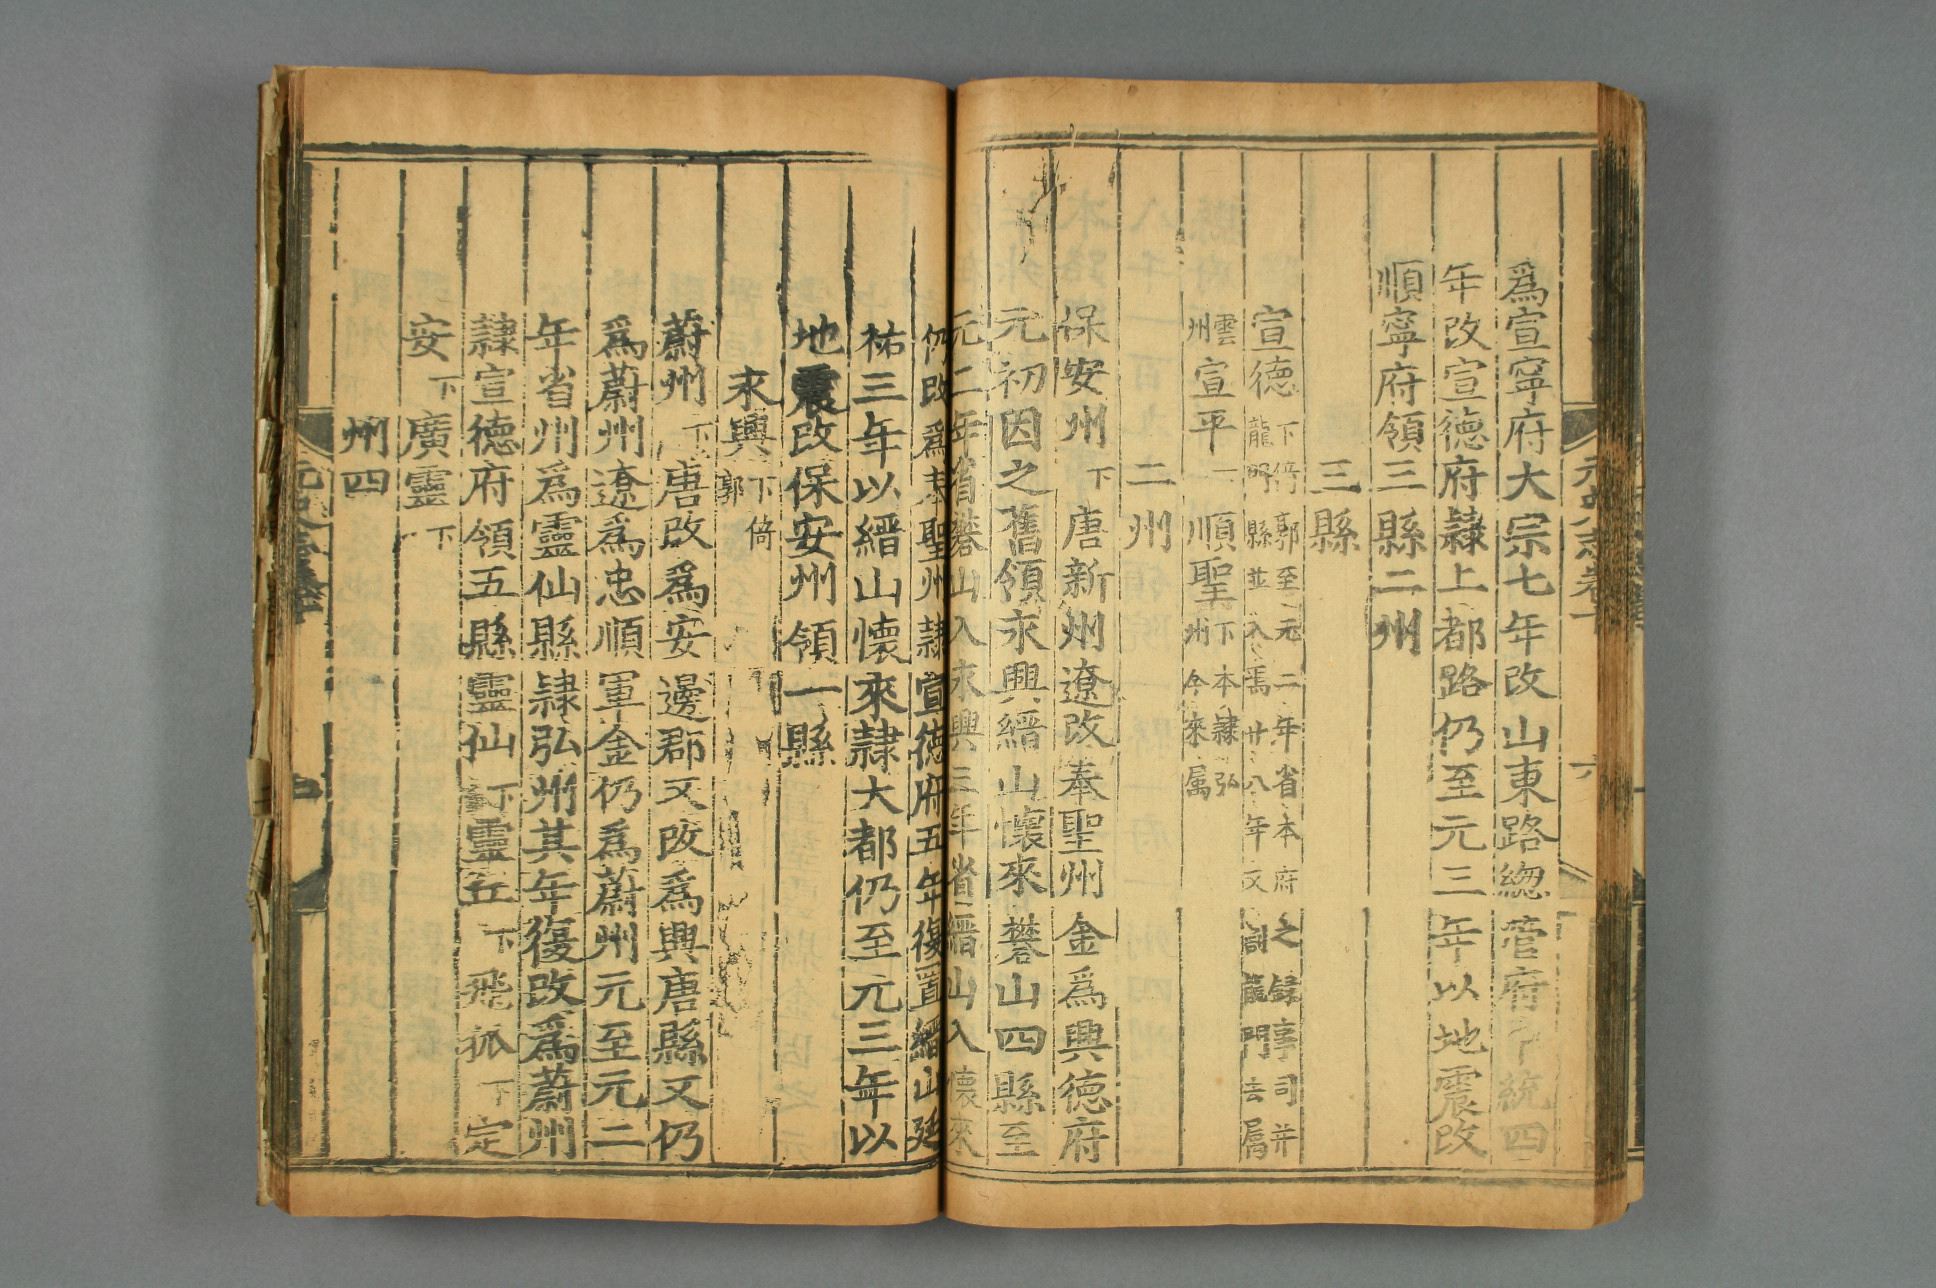 爲宣寧府太宗七年改山東路總管府中統四
年改宣德府隸上都路仍至元三年以地震改
順寧府領三縣二州
三縣
宣德下倚郭至元二年省本府之録事司并
龍門縣並入焉廿八年又割龍門去屬
雲州宣平下順聖下本隸弘
州今來屬
二州
保安州下唐新州遼改奉聖州金爲興德府
元初因之舊領永興縉山懷來礬山四縣至
元二年省礬山入永興三年省縉山入懷來
仍改爲奉聖州隸宣德府五年復置縉山延
祐三年以縉山懷來隸大都仍至元三年以
地震改保安州領一縣
永興下倚
郭
蔚州下唐改爲安邊郡又改爲興唐縣又仍
爲蔚州遼爲忠順軍金仍爲蔚州元至元二
年省州爲靈仙縣隸弘州其年復改爲蔚州
隸宣德府領五縣靈仙下靈丘下飛狐下定
安下廣靈下
州四